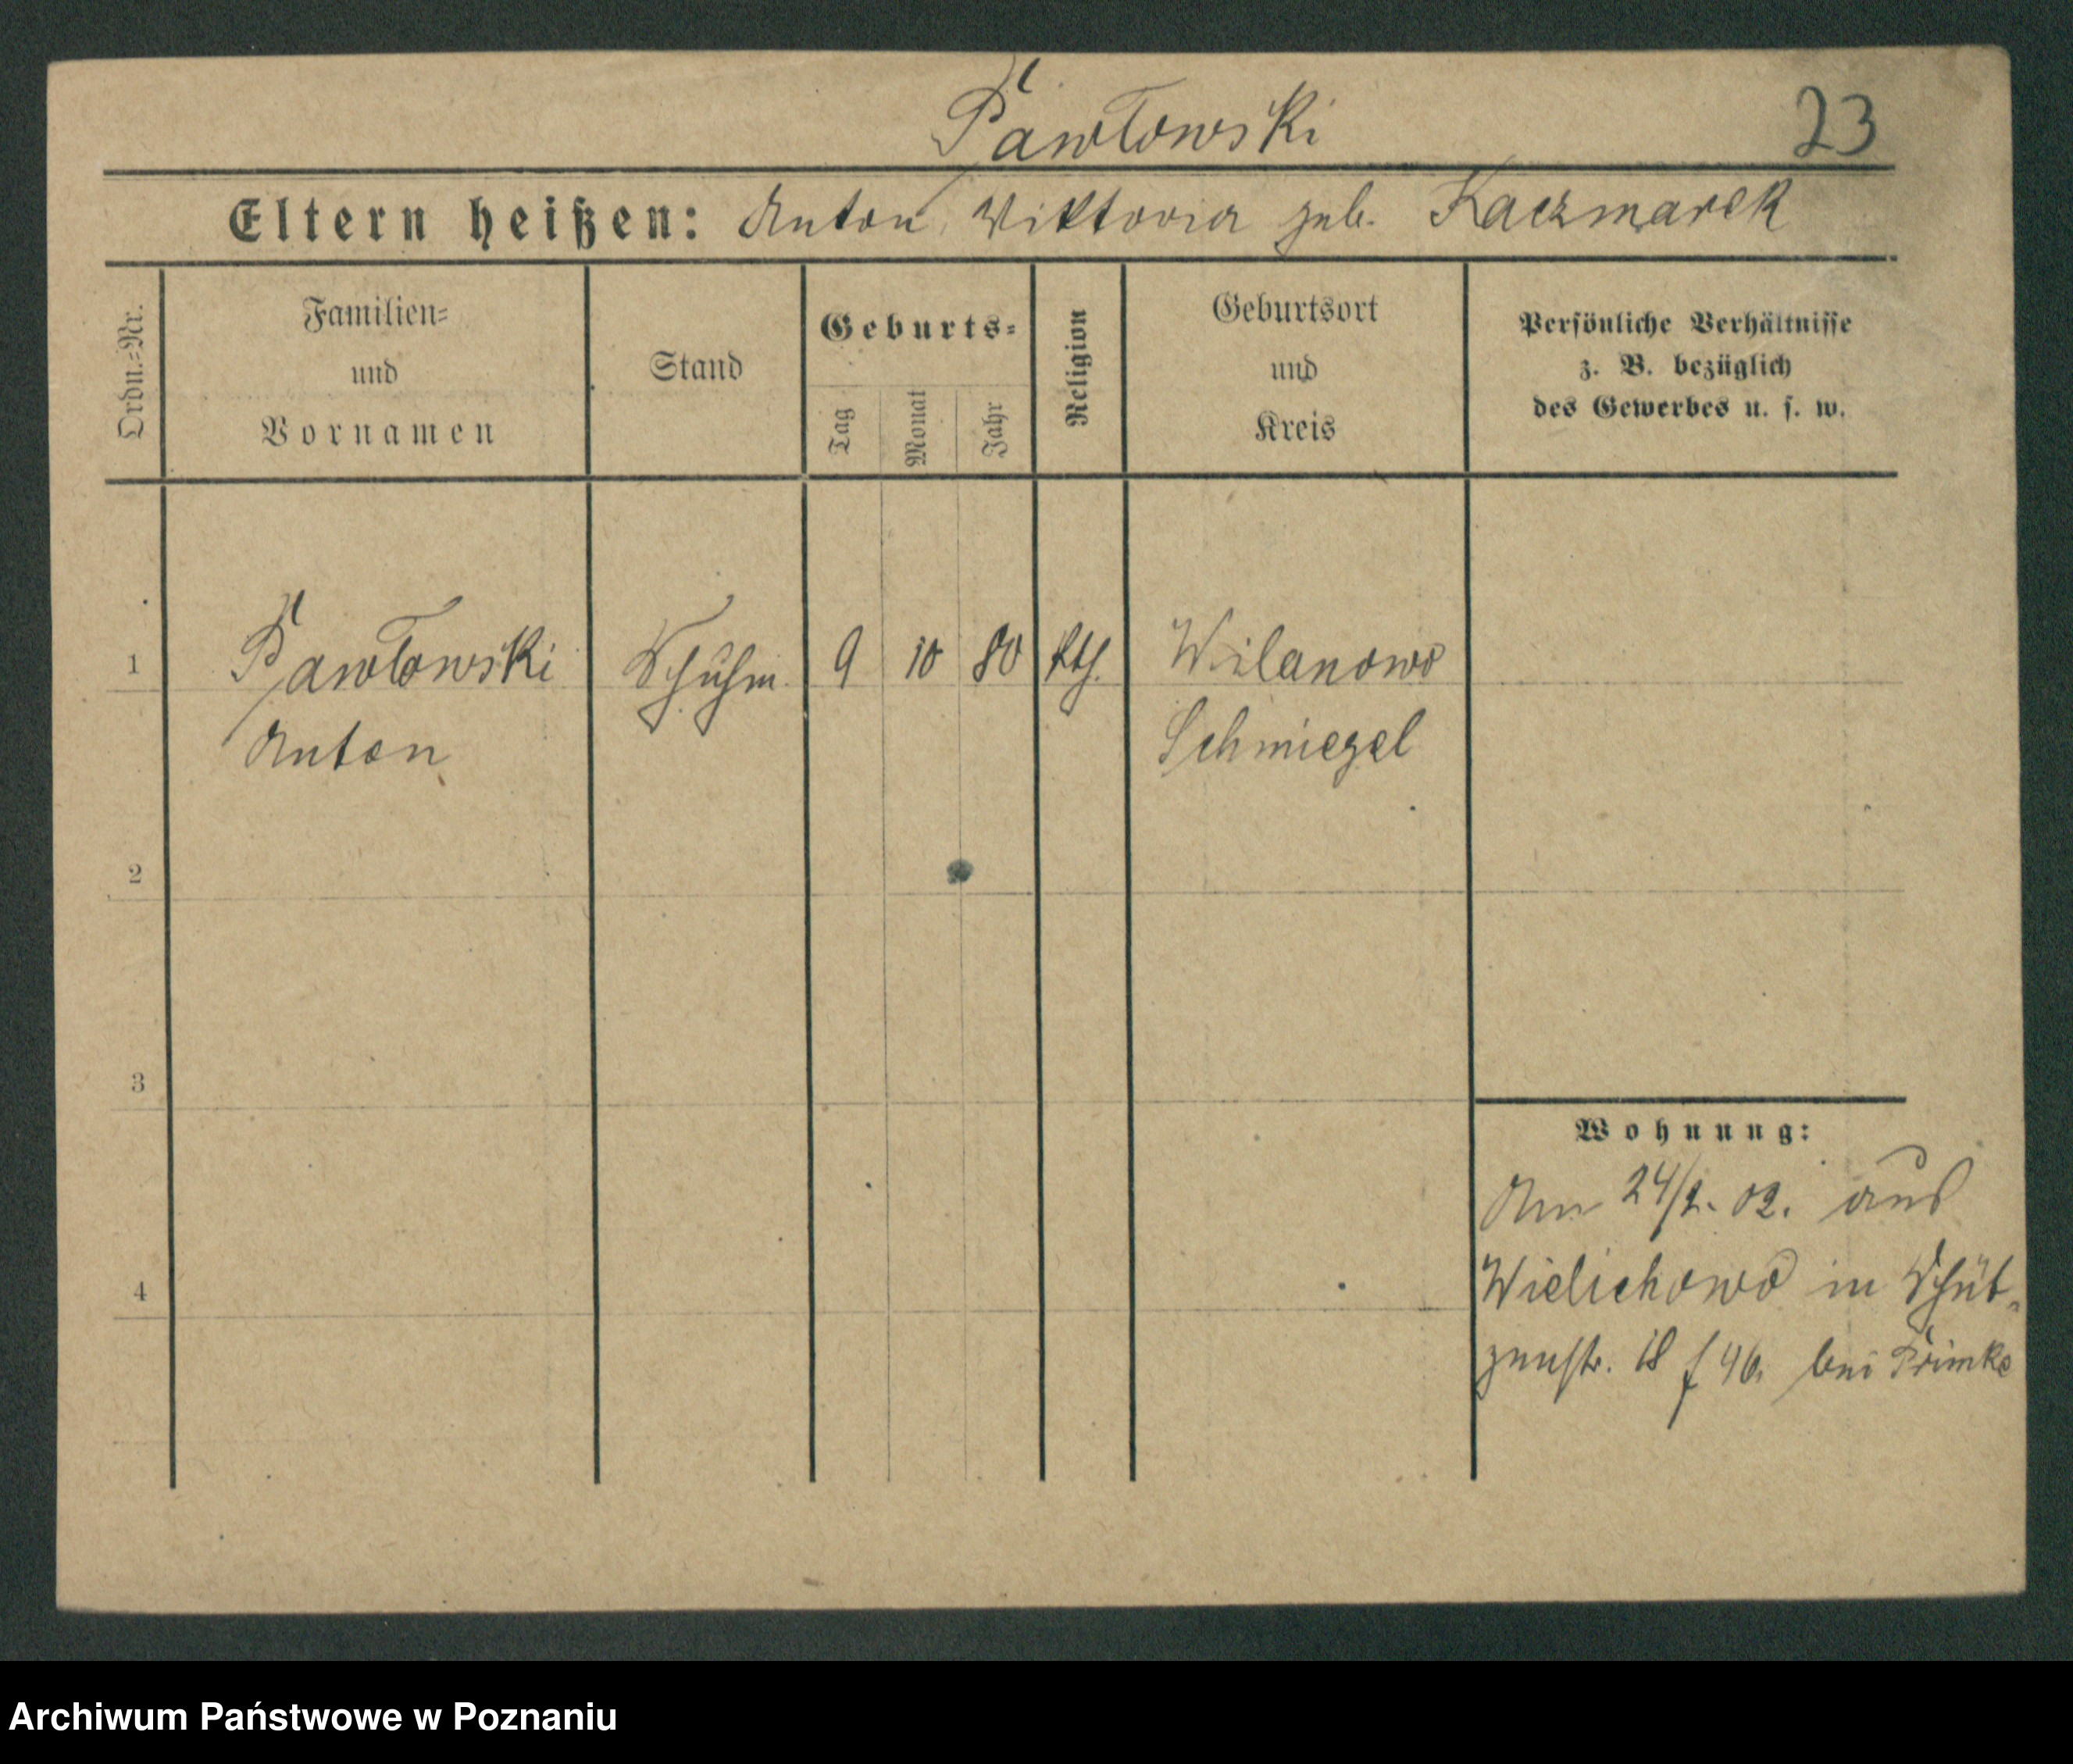 Pawłowski 23
Eltern heißen: Anton, Viktoria geb. Kaczmarek
Ordn.=Nr.
Familien=
und
Vornamen
Stand
Geburts=
Tag
Monat
Jahr
Religion
Geburtsort
und
Kreis
Persönliche Verhältnisse
z. B. bezüglich
des Gewerbes u. s. w.
1 Pawłowski Schuhm. 9 10 80 kth. Wilanowo
Anton Schmiegel
2
3
Wohnung:
Am 24/2. 02. aus
Wielichowo in Schüt-
4
zenstr. 18 f 46. bei Primke
Archiwum Państwowe w Poznaniu